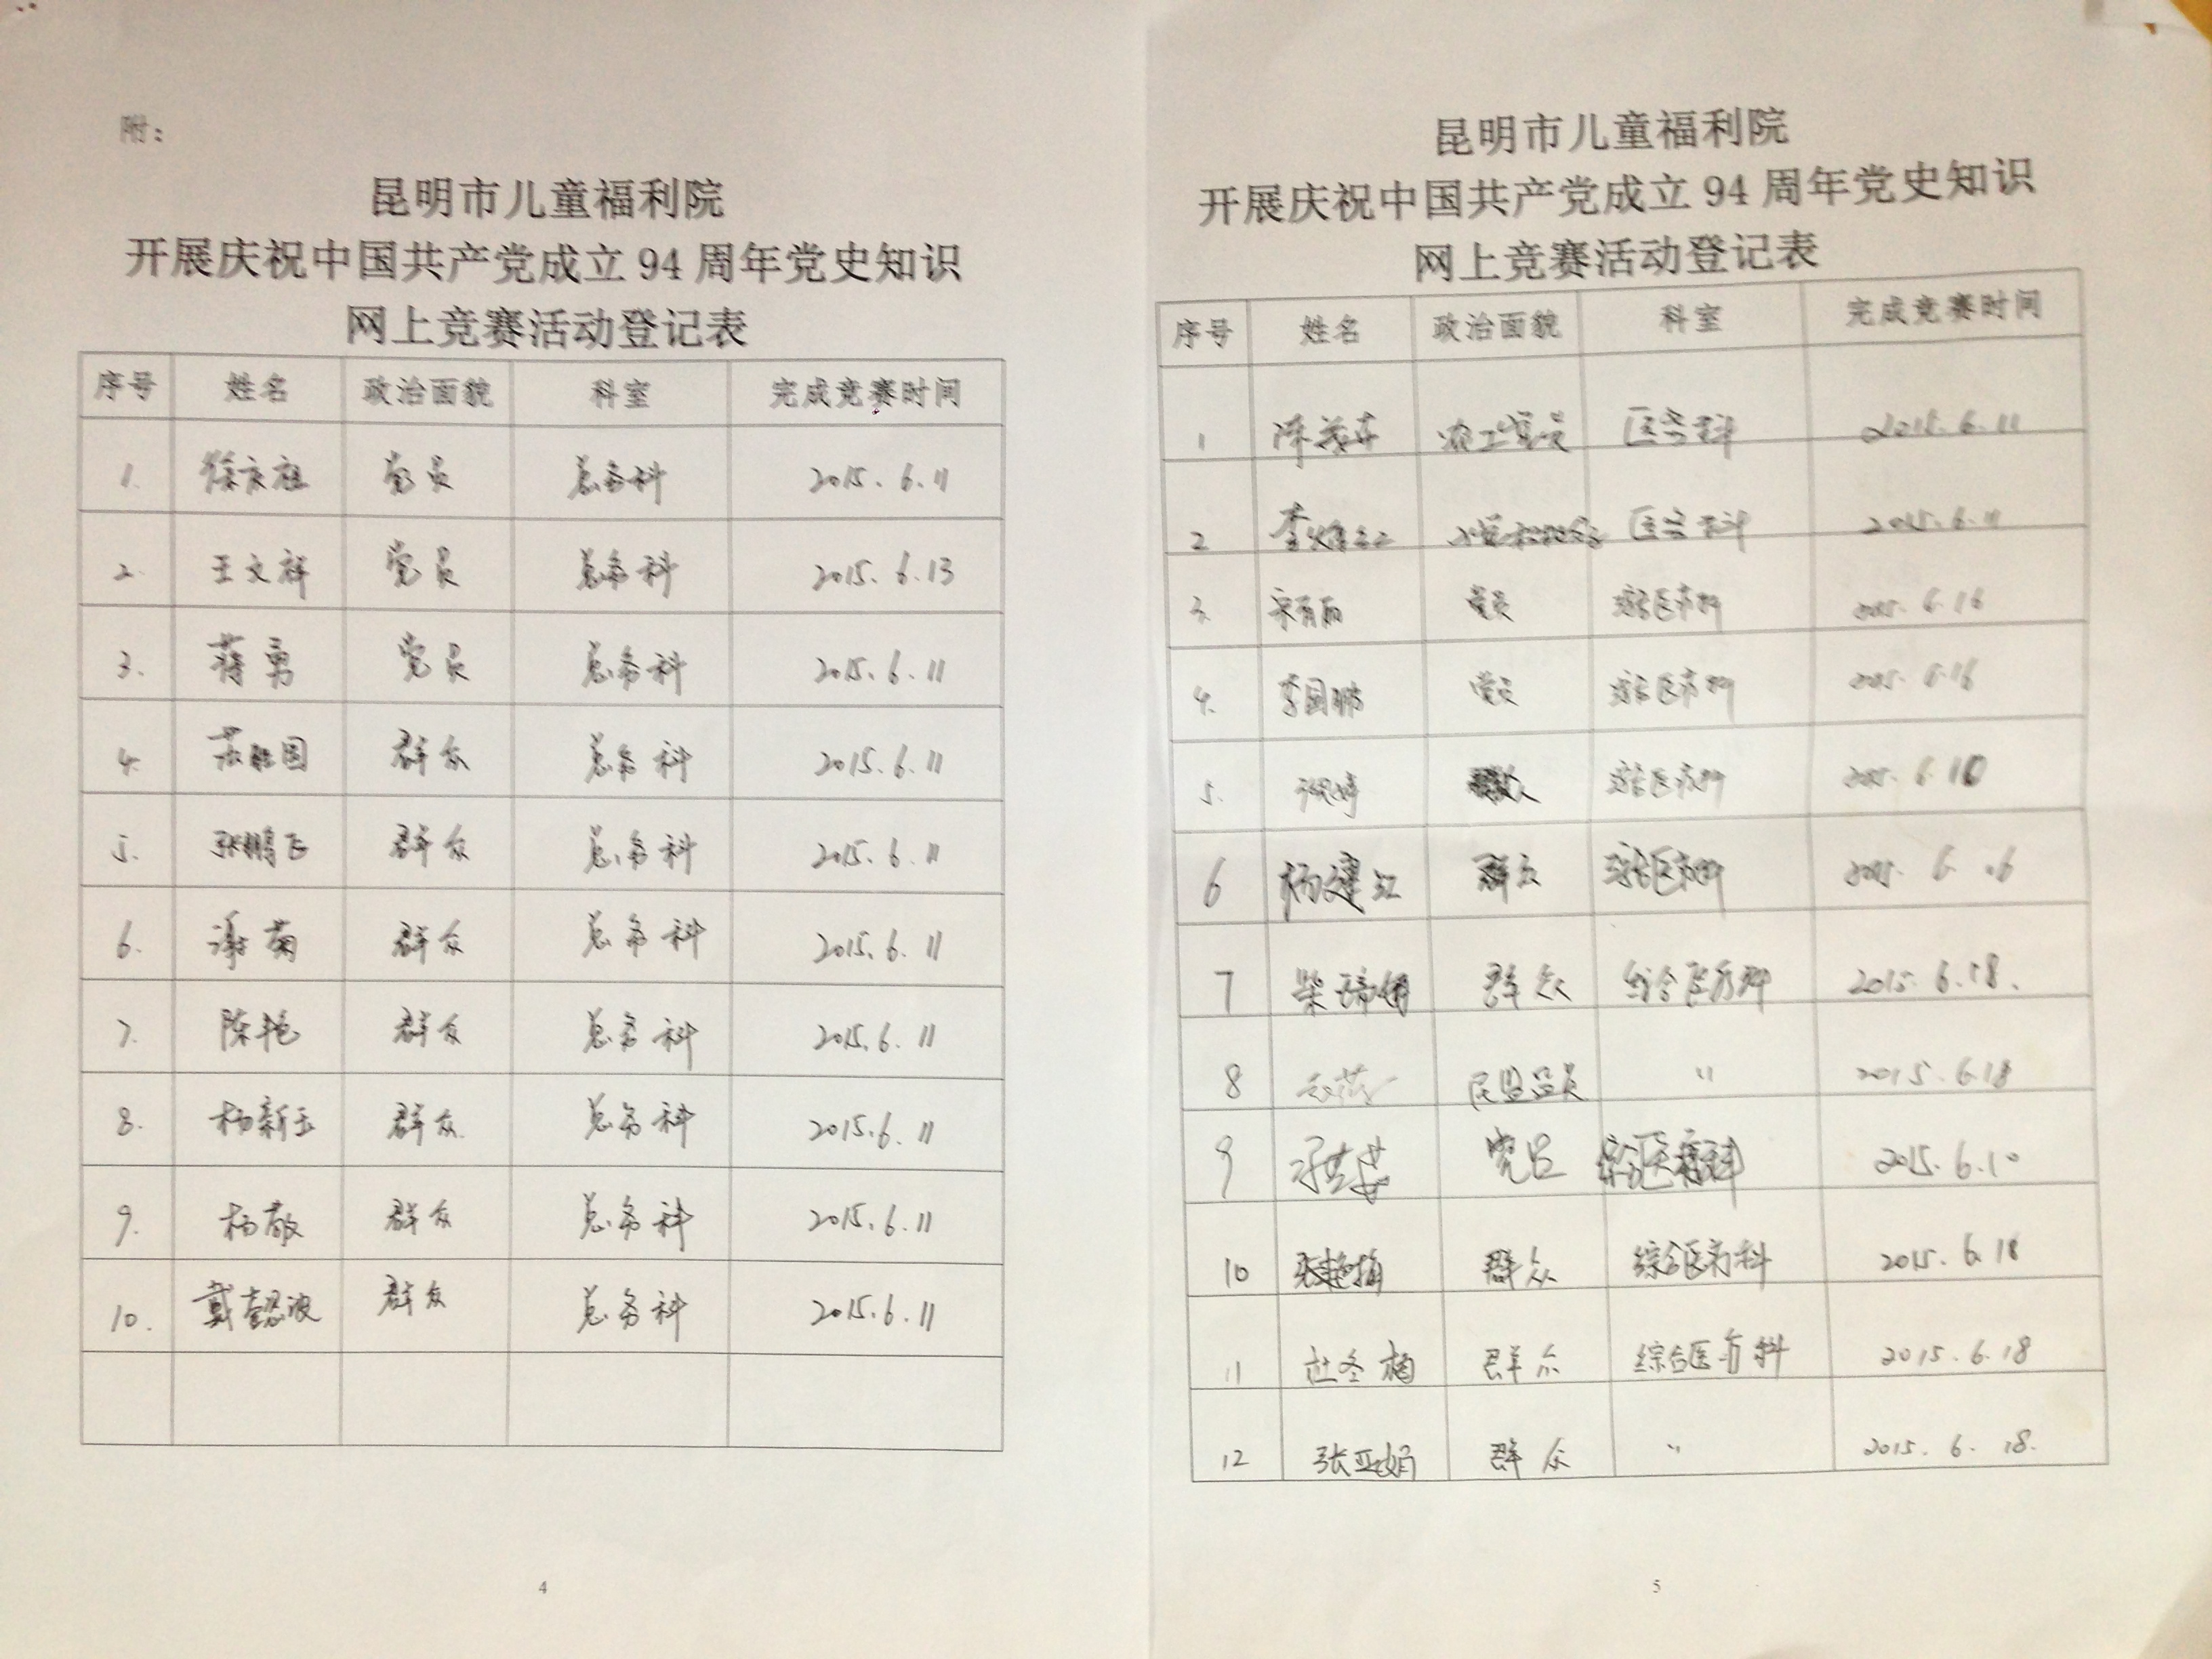 附：
昆明市儿童福利院
开展庆祝中国共产党成立 94 周年党史知识
网上竞赛活动登记表
序号 姓名 政治面貌 科室 完成竞赛时间
1. 徐庆祖 党员 总务科 2015.6.11
2. 王文祥 党员 总务科 2015.6.13
3. 蒋勇 党员 总务科 2015.6.11
4. 群众 总务科 2015.6.11
5. 张鹏飞 群众 总务科 2015.6.11
6. 谢菊 群众 总务科 2015.6.11
7. 陈艳 群众 总务科 2015.6.11
8. 杨新玉 群众 总务科 2015.6.11
9. 杨敏 群众 总务科 2015.6.11
10. 群众 总务科 2015.6.11
4
昆明市儿童福利院
开展庆祝中国共产党成立 94 周年党史知识
网上竞赛活动登记表
序号 姓名 政治面貌 科室 完成竞赛时间
1 农工党员 医务科 2015.6.11
2 医务科 2015.6.11
3. 党员 综合医疗科 2015.6.16
4. 李国鹏 党员 综合医疗科 2015.6.16
5. 综合医疗科 2015.6.10
6 杨建红 群众 综合医疗科 2015.6.16
7 群众 综合医疗科 2015.6.18.
8 民盟盟员 〃 2015.6.18
9 党员 综合医疗科 2015.6.10
10 群众 综合医疗科 2015.6.18
11 杜冬梅 群众 综合医疗科 2015.6.18
12 张亚娟 群众 〃 2015.6.18.
5